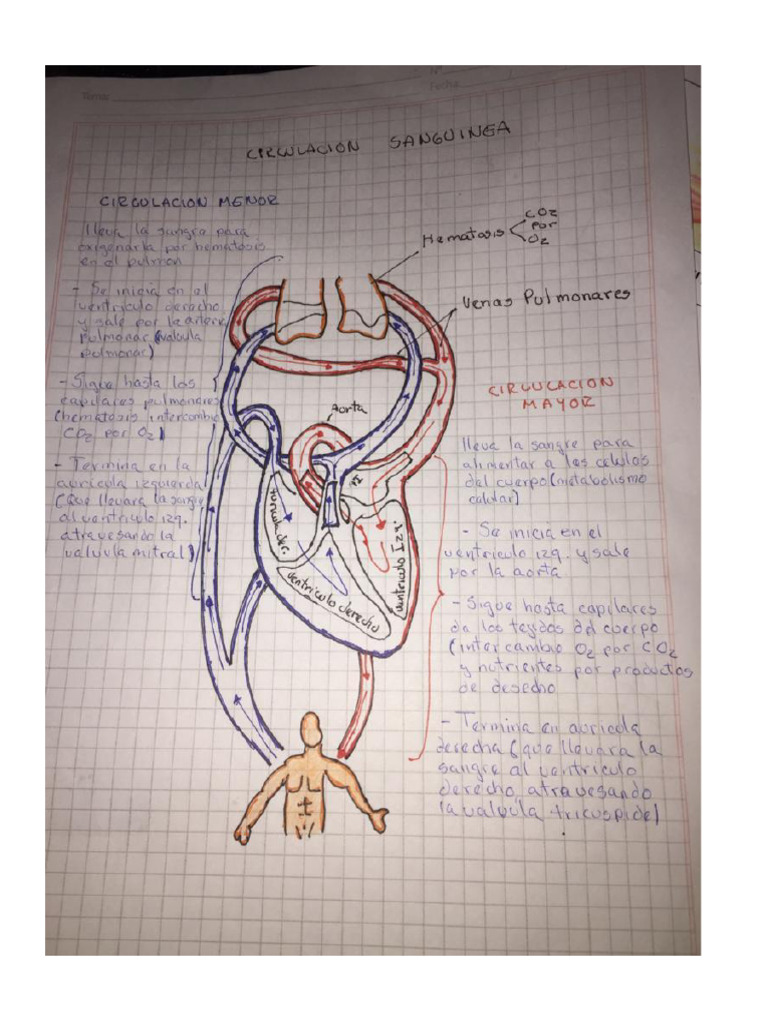 Tema:
Nº
Fecha
CIRCULACION SANGUINEA
CIRCULACION MENOR
lleva la sangre para
oxigenarla por hematosis
en el pulmon
- Se inicia en el
ventriculo derecho
y sale por la arteria
pulmonar (valvula
pulmonar)
- Sigue hasta los
capilares pulmonares
(hematosis intercambio
CO2 por O2)
- Termina en la
auricula izquierda
(que llevara la sangre
al ventriculo izq.
atravesando la
valvula mitral)
Hematosis
CO2
por
O2
Venas Pulmonares
Aorta
auricula der.
ventriculo derecho
ventriculo Izq.
CIRCULACION
MAYOR
lleva la sangre para
alimentar a las celulas
del cuerpo (metabolismo
celular)
- Se inicia en el
ventriculo izq. y sale
por la aorta
- Sigue hasta capilares
de los tejidos del cuerpo
(intercambio O2 por CO2
y nutrientes por productos
de desecho
- Termina en auricula
derecha (que llevara la
sangre al ventriculo
derecho, atravesando
la valvula tricuspide)